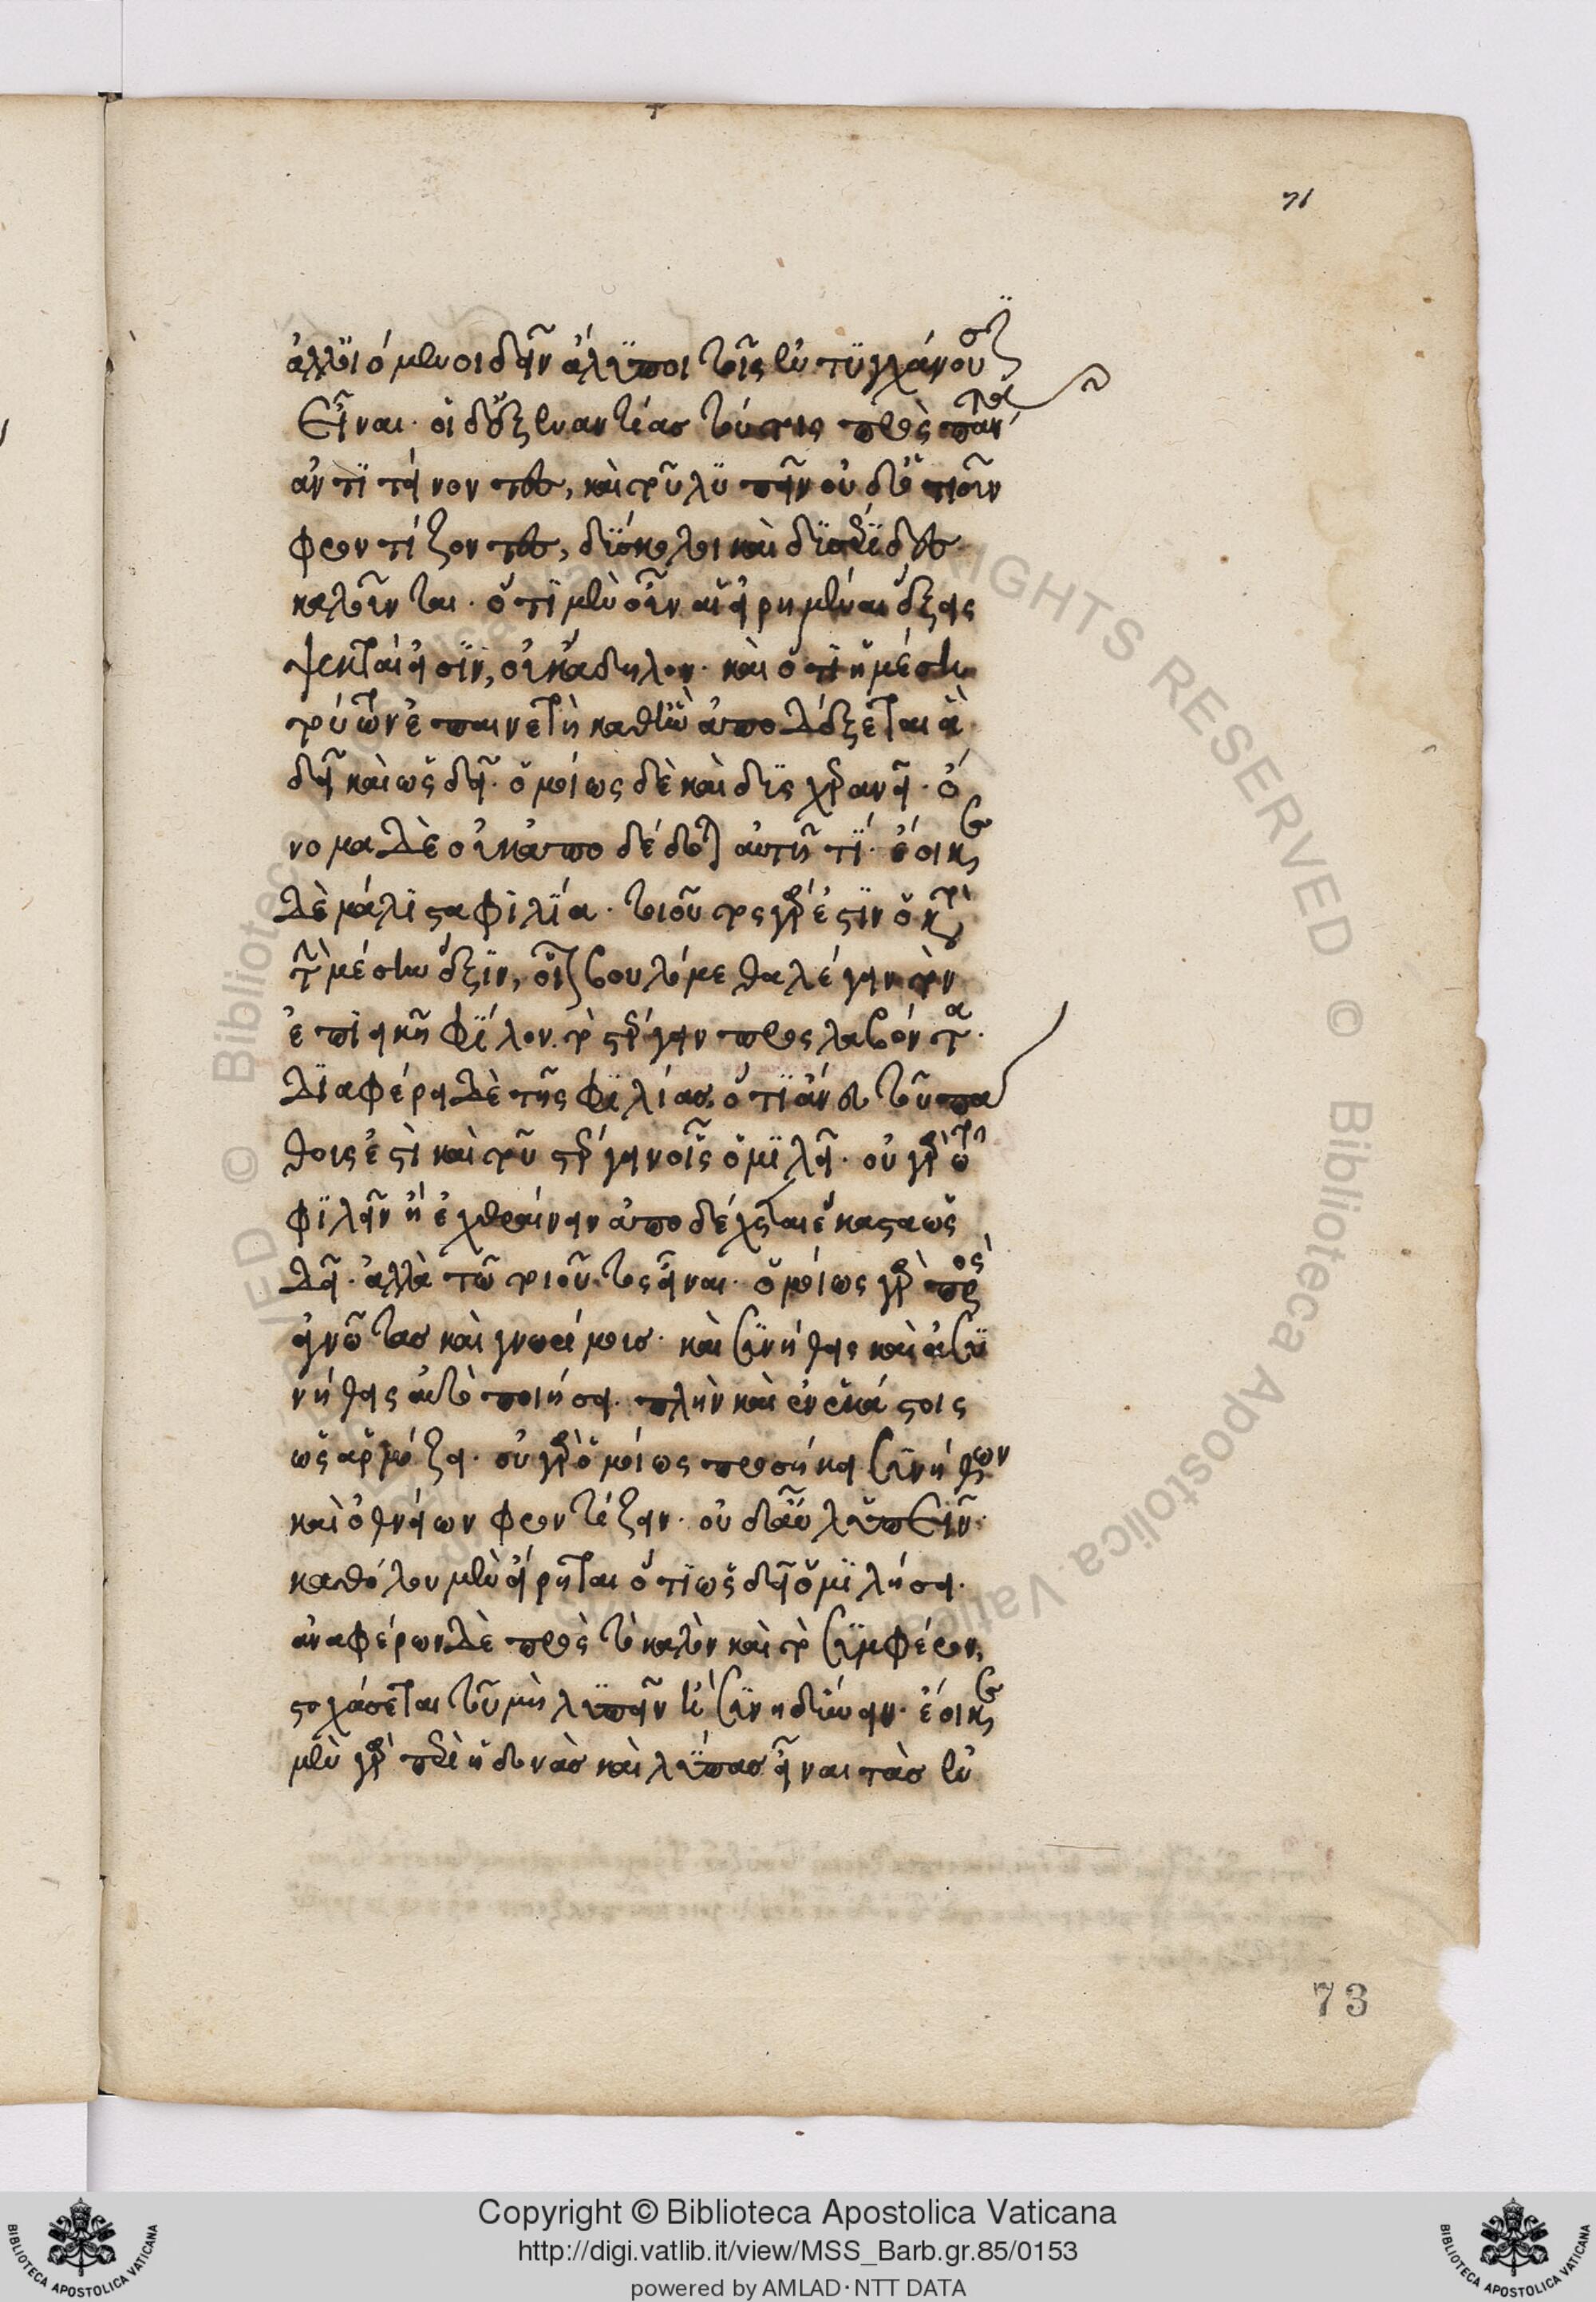 71
ἀλλ' οἴομενοι δεῖν ἄλυποι τοῖς ἐντυγχάνουσιν
εἶναι· οἱ δ' ἐξ ἐναντίας τούτοις πρὸς πάντα
ἀντιτείνοντες, καὶ τοῦ λυπεῖν οὐδ' ὁτιοῦν
φροντίζοντες, δύσκολοι καὶ δυσέριδες
καλοῦνται· ὅτι μὲν οὖν αἱ εἰρημέναι ἕξεις
ψεκταί εἰσιν, οὐκ ἄδηλον· καὶ ὅτι ἡ μέση
τούτων ἐπαινετὴ καθ' ἣν ἀποδέξεται ἃ
δεῖ καὶ ὡς δεῖ· ὁμοίως δὲ καὶ δυσχερανεῖ· ὄ
νομα δὲ οὐκ ἀποδέδοται αὐτῇ τι· ἔοικε
δὲ μάλιστα φιλία· τοιοῦτος γάρ ἐστιν ὁ κατὰ
τὴν μέσην ἕξιν, οἷον βουλόμεθα λέγειν τὸν
ἐπιεικῆ φίλον· τὸ στέργειν προσλαβόντα·
διαφέρει δὲ τῆς φιλίας, ὅτι ἄνευ τοῦ πά
θους ἐστὶ καὶ τοῦ στέργειν οἷς ὁμιλεῖ· οὐ γὰρ τῷ
φιλεῖν ἢ ἐχθραίνειν ἀποδέχεται ἕκαστα ὡς
δεῖ· ἀλλὰ τῷ τοιοῦτος εἶναι· ὁμοίως γὰρ πρὸς
ἀγνῶτας καὶ γνωρίμους· καὶ συνήθεις καὶ ἀσυ
νήθεις αὐτὸ ποιήσει· πλὴν καὶ ἐν ἑκάστοις
ὡς ἁρμόζει· οὐ γὰρ ὁμοίως προσήκει συνήθων
καὶ ὀθνείων φροντίζειν· οὐδ' αὖ λυπεῖν·
καθόλου μὲν εἴρηται ὅτι ὡς δεῖ ὁμιλήσει·
ἀναφέρων δὲ πρὸς τὸ καλὸν καὶ τὸ συμφέρον,
στοχάσεται τοῦ μὴ λυπεῖν ἢ συνηδύνειν· ἔοικε
μὲν γὰρ περὶ ἡδονὰς καὶ λύπας εἶναι τὰς ἐν
73
Copyright © Biblioteca Apostolica Vaticana
http://digi.vatlib.it/view/MSS_Barb.gr.85/0153
powered by AMLAD·NTT DATA